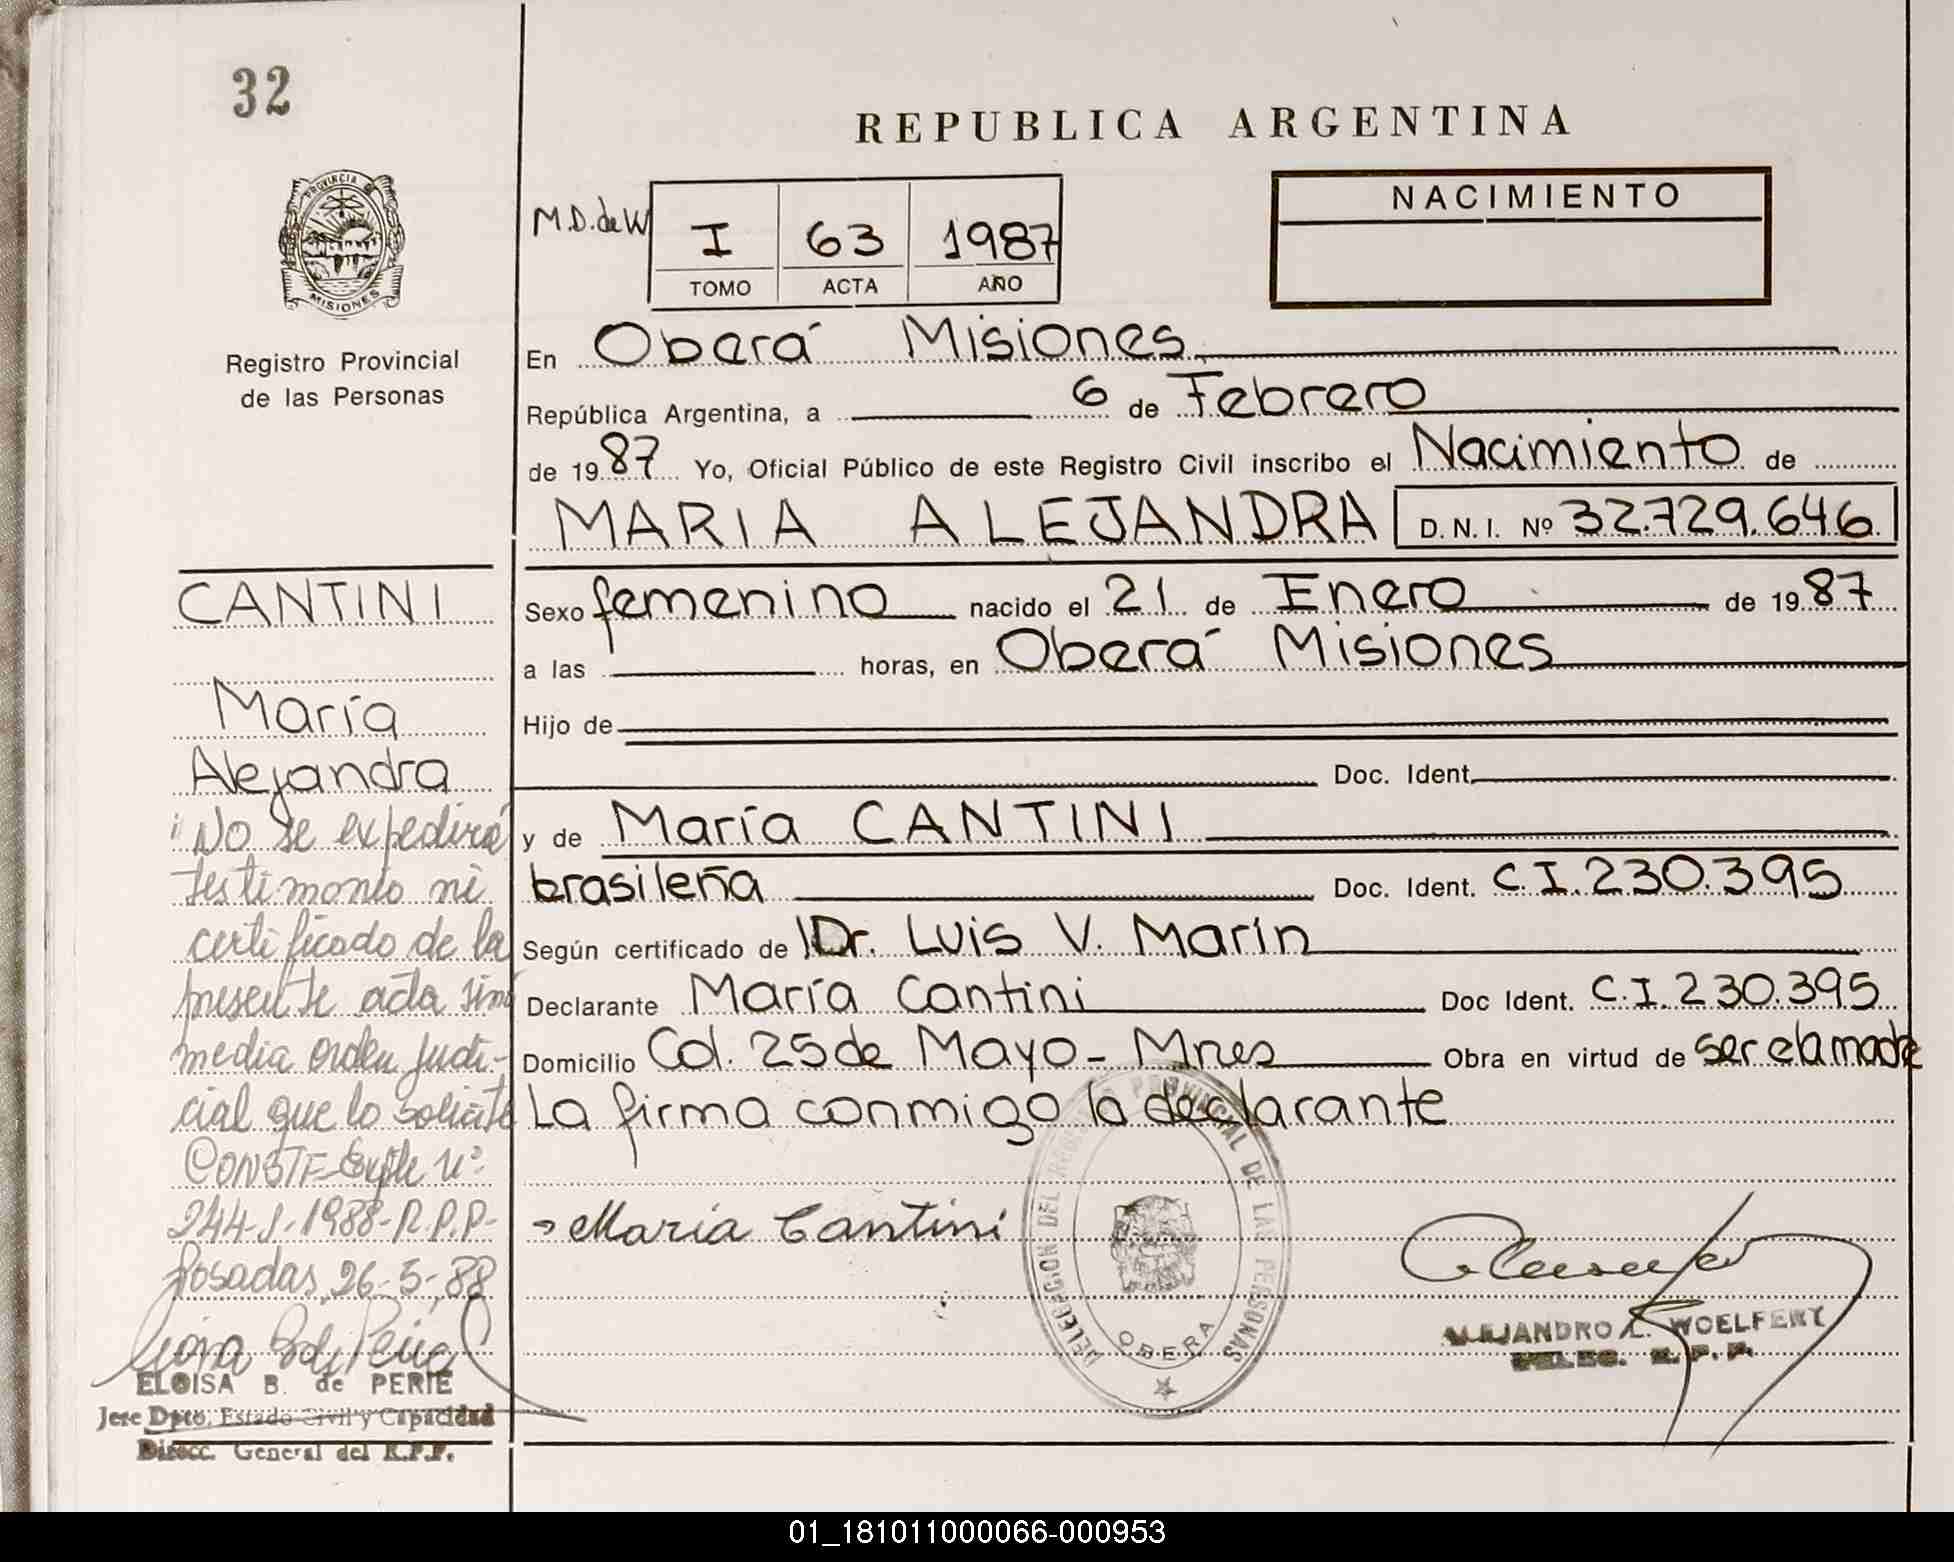 32
REPUBLICA ARGENTINA
PROVINCIA DE
MISIONES
Registro Provincial
de las Personas
M.D. de W
I 63 1987
TOMO ACTA AÑO
NACIMIENTO
En Oberá Misiones
República Argentina, a 6 de Febrero
de 1987 Yo, Oficial Público de este Registro Civil inscribo el Nacimiento de
MARIA ALEJANDRA D.N.I. Nº 32.729.646
Sexo femenino nacido el 21 de Enero de 1987
a las horas, en Oberá Misiones
Hijo de
Doc. Ident.
y de María CANTINI
brasileña Doc. Ident. C.I.230.395
Según certificado de Dr. Luis V. Marín
Declarante María Cantini Doc Ident. C.I.230.395
Domicilio Col. 25 de Mayo - Mnes Obra en virtud de ser ela madre
La firma conmigo la declarante
Maria Cantini
DELEGACION DEL REGISTRO PROVINCIAL DE LAS PERSONAS
OBERA
ALEJANDRO L. WOELFERT
DELEG. R. P. P.
CANTINI
María
Alejandra
No se expedirá
testimonio ni
certificado de la
presente acta sino
media orden judi-
cial que lo solicite
CONSTE Expte nº
244-J-1988-R.P.P-
Posadas, 26-5-88
ELOISA B. de PERIE
Jefe Dpto. Estado Civil y Capacidad
Direcc. General del R.P.P.
01_181011000066-000953